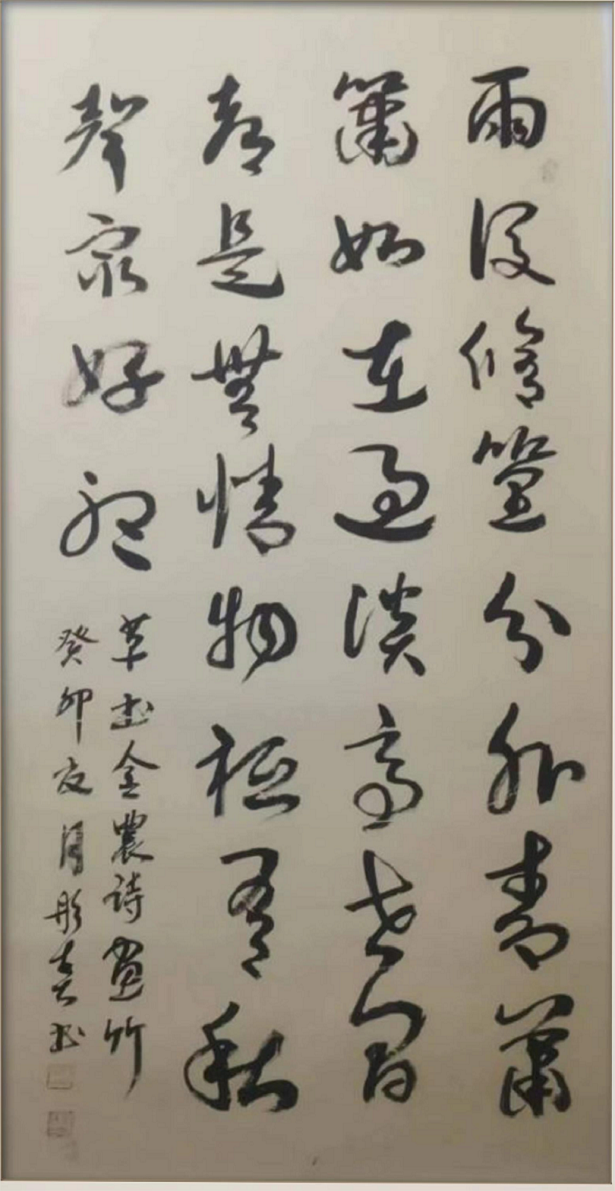 雨後修篁分外青蕭
蕭如在過溪亭世間
都是無情物祗有秋
聲最好聽
草書金農詩畫竹
癸卯夏月彤書